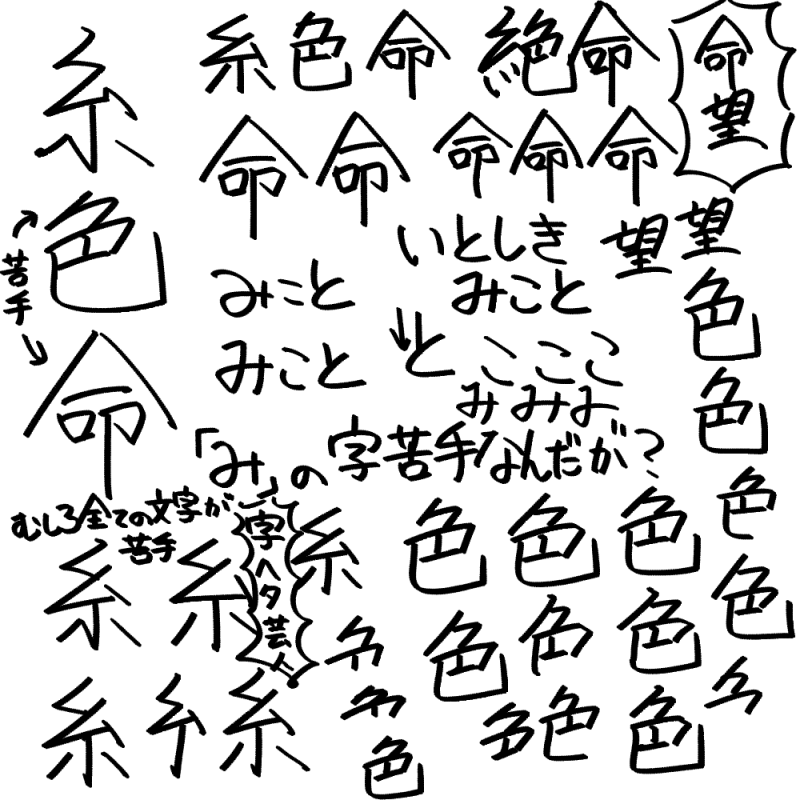 糸色命
苦手
糸色命
絶命
命望
命命
命命命
いとしき
みこと
望望
みこと
みこと
と
こここ
みみみ
「み」の字苦手なんだが?
むしろ全ての文字が
苦手
字ヘタ芸人
糸糸
糸
糸
糸
色色色
色色色
色
色
色
色
色
色
色
色